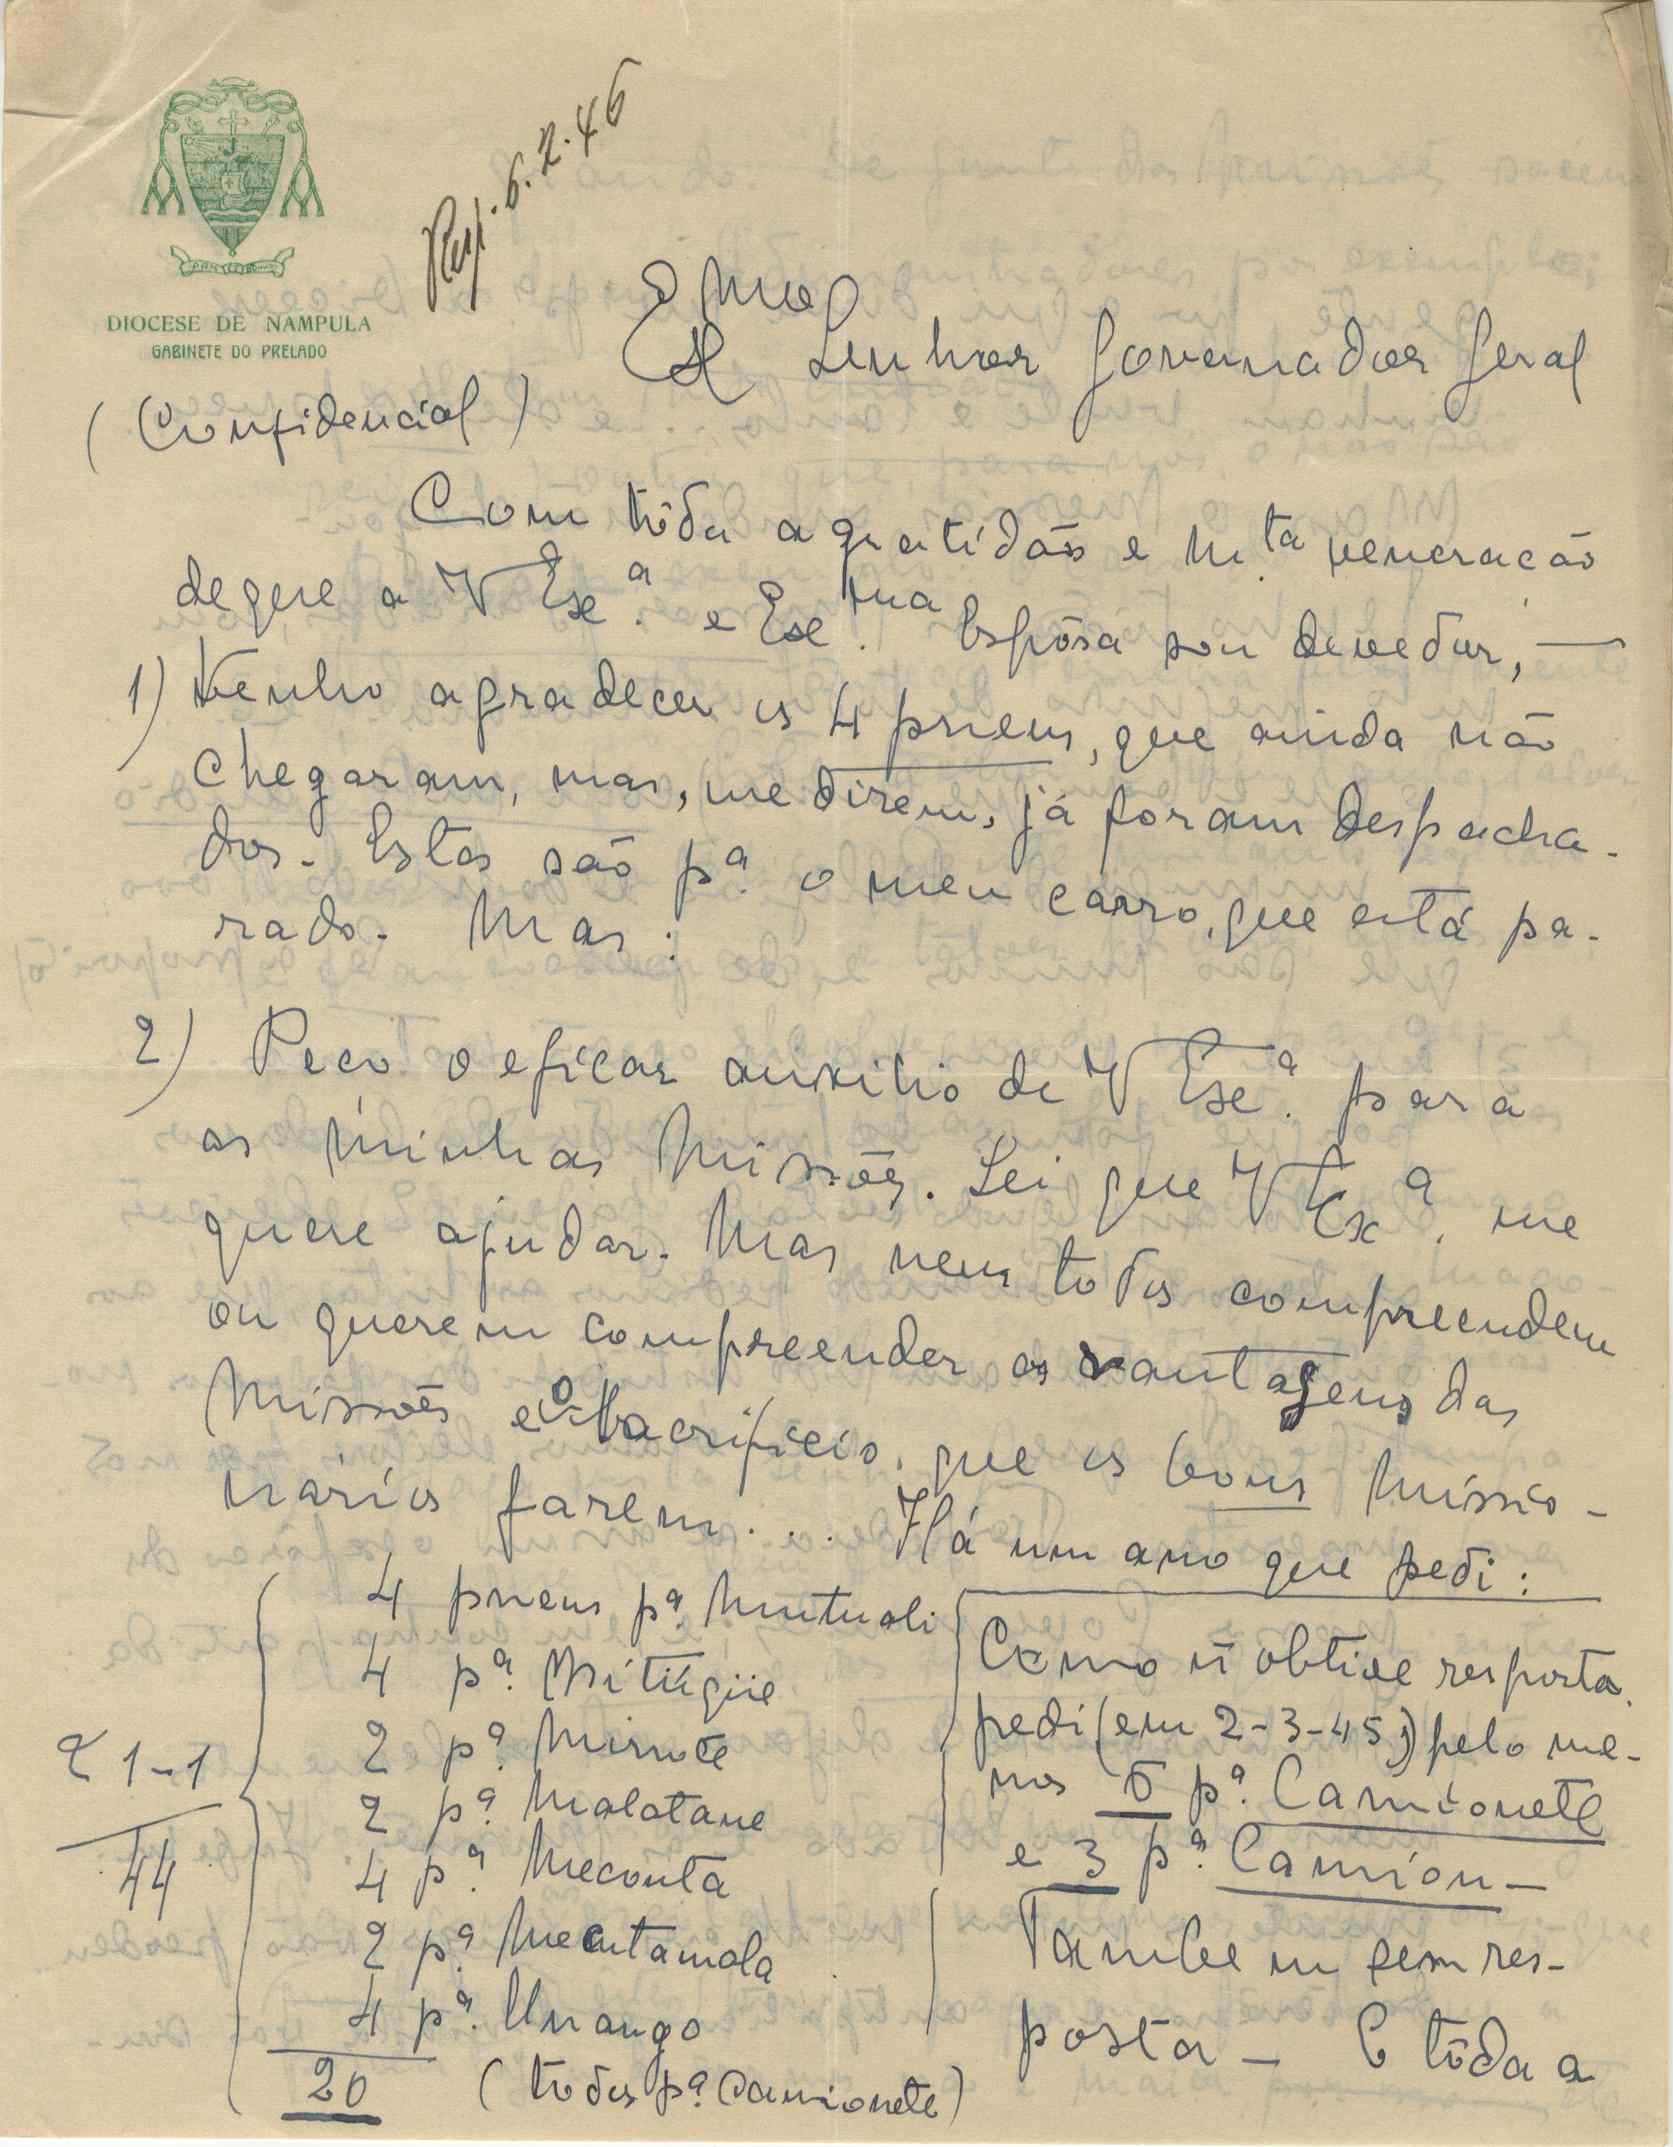 Resp. 6.2.46
DIOCESE DE NAMPULA
GABINETE DO PRELADO
(Confidencial)
Exmo Senhor Governador Geral
Com tôda a gratidão e m.ta veneração
de que a V Exc.a e Exc.ma Espôsa sou devedor, —
1) Venho agradecer os 4 pneus, que ainda não
chegaram, mas, me dizem, já foram despacha-
dos. Estes são p.a o meu carro, que está pa-
rado. Mas:
2) Peço o eficaz auxilio de V Exc.a para
as minhas Missões. Sei que V Ex.a me
quere ajudar. Mas nem todos compreendem
ou querem compreender as vantagens das
Missões e o sacrificio, que os bons Missio-
nários fazem... Há um ano que pedi:
21-1
44
4 pneus p.a Mutuali
4 p.a Mitúgùe
2 p.a Mirrote
2 p.a Malatane
4 p.a Meconta
2 p.a Mecutamala
4 p.a Unango
20 (todos p.a Camionete)
Como ñ obtive resposta,
pedi (em 2-3-45) pelo me-
nos 6 p.a Camionete
e 3 p.a Camion —
Tambem sem res-
posta — E tôda a